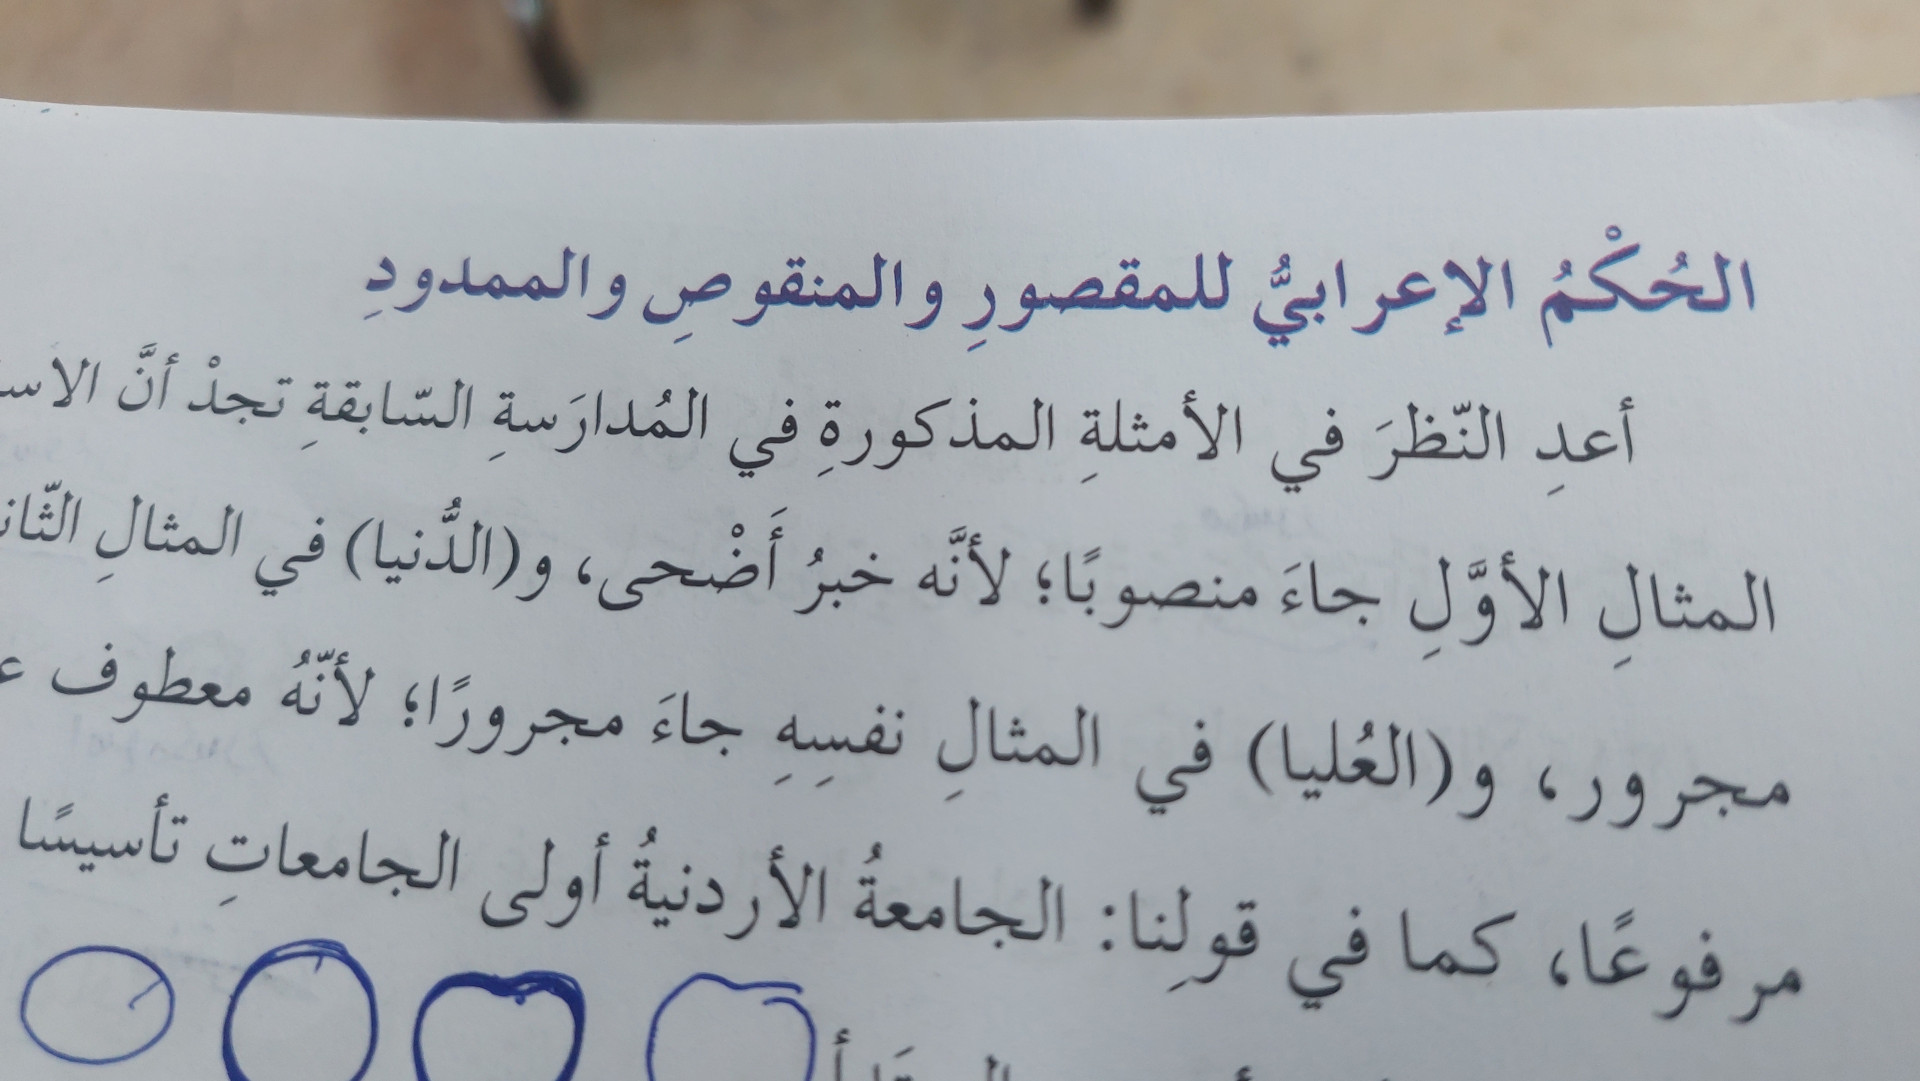 الحُكْمُ الإعرابيُّ للمقصورِ والمنقوصِ والممدودِ
أعدِ النّظرَ في الأمثلةِ المذكورةِ في المُدارَسةِ السّابقةِ تجدْ أنَّ
المثالِ الأوَّلِ جاءَ منصوبًا؛ لأنَّه خبرُ أَضْحى، و(الدُّنيا) في المثالِ
مجرور، و(العُليا) في المثالِ نفسِهِ جاءَ مجرورًا؛ لأنّهُ معطوف
مرفوعًا، كما في قولِنا: الجامعةُ الأردنيةُ أولى الجامعاتِ تأسيسًا